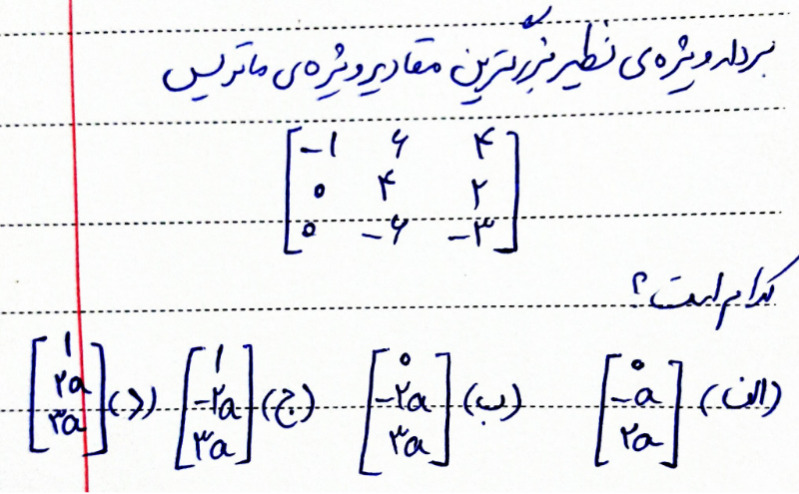 بردار ویژه‌ی نظیر بزرگترین مقادیر ویژه‌ی ماتریس
[-۱ ۶ ۴]
[۰ ۴ ۲]
[۰ -۶ -۳]
کدام است؟
الف) [۰ -a ۲a] ب) [۰ -۲a ۳a] ج) [۱ -۲a ۳a] د) [۱ ۲a ۳a]